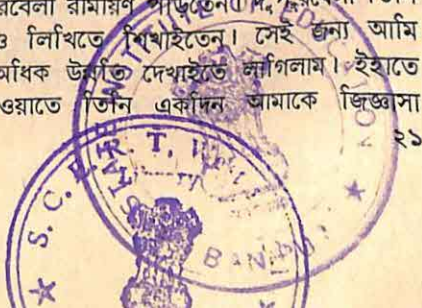 রবেলা রামায়ণ পড়িতেন।
ও লিখিতে শিখাইতেন। সেই জন্য আমি
অধিক উন্নতি দেখাইতে লাগিলাম। ইহাতে
ওয়াতে তিনি একদিন আমাকে জিজ্ঞাসা
২১
S. C. E. R. T.
BAN